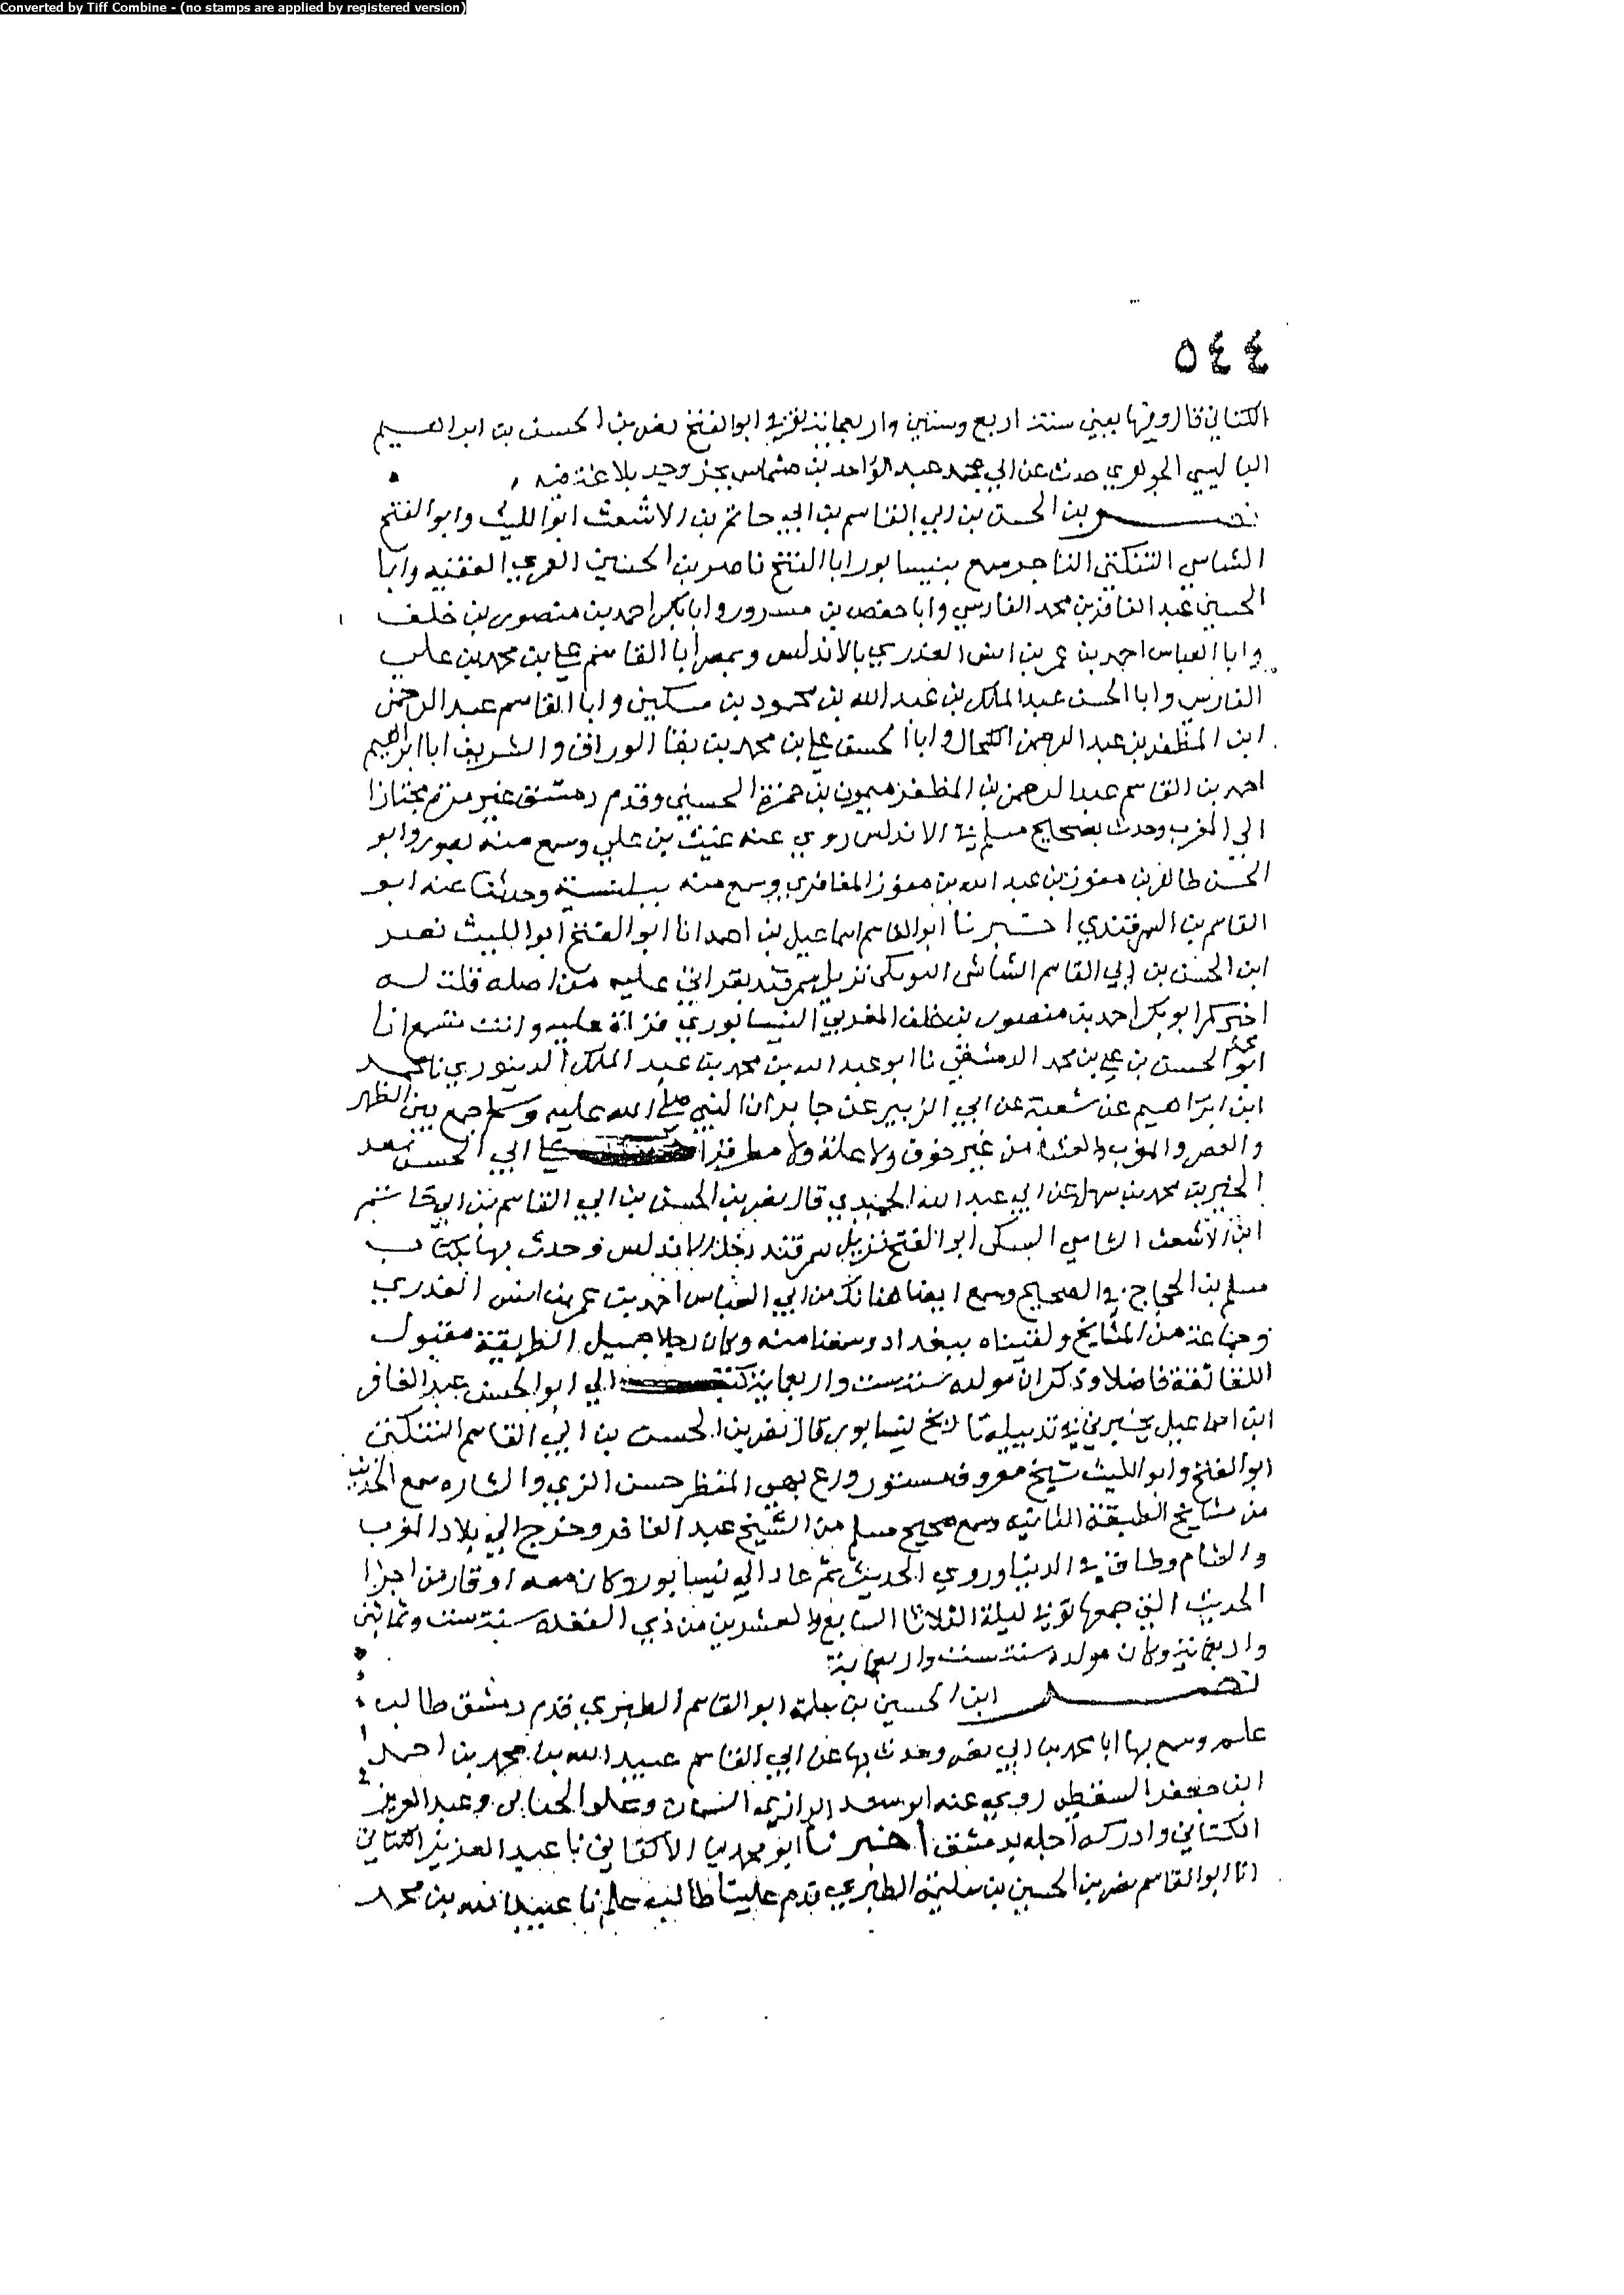 Converted by Tiff Combine - (no stamps are applied by registered version)
٥٤٤
الكتاني قال وفيها يعني سنة اربع وستين واربعماية توفي ابو الفتح نصر بن الحسن بن ابراهيم
البالسي الجوهري حدث عن ابي محمد عبد الواحد بن مشماس بجزو حيد بلاغة فيه
نصر بن الحسن بن ابي القاسم بن ابي حاتم بن الاشعث ابو الليث وابو الفتح
الشاسي التنكتي التاجر سمع بنيسابور ابا الفتح ناصر بن الحسين العمري الفقيه وابا
الحسين عبد الغافر بن محمد الفارسي وابا حفص بن مسرور وابا بكر احمد بن منصور بن خلف
وابا العباس احمد بن عمر بن انس العذري بالاندلس وبمصر ابا القاسم علي بن محمد بن علي
الفارسي وابا الحسن عبد الملك بن عبد الله بن محمود بن مسكين وابا القاسم عبد الرحمن
ابن المظفر بن عبد الرحمن الكحال وابا الحسن علي بن محمد بن بقا الوراق والشريف ابا ابراهيم
احمد بن القاسم عبد الرحمن بن المظفر ميمون بن حمزة الحسيني وقدم دمشق غير مرة مجتازا
الي المغرب وحدث بصحيح مسلم في الاندلس روي عنه غيث بن علي وسمع منه بصور وابو
الحسن طاهر بن مفوز بن عبد الله بن مفوز المعافري وسمع منه ببلنسية وحدثنا عنه ابو
القاسم بن السمرقندي اخبرنا ابو القاسم اسماعيل بن احمد انا ابو الفتح ابو الليث نصر
ابن الحسن بن ابي القاسم الشاشي نزيل سمرقند بقراتي عليه من اصله قلت له
اخبركم ابو بكر احمد بن منصور بن خلف المغربي النيسابوري قراة عليه وانت تسمع انا
ابو الحسن بن علي بن محمد الدمشقي نا ابو عبد الله بن محمد بن عبد الملك الدينوري نا محمد
ابن ابراهيم عن شعبة عن ابي الزبير عن جابر ان النبي صلى الله عليه وسلم جمع بين الظهر
والعصر والمغرب والعشا من غير خوف ولا علة ولا مطر قرات علي ابي الحسن سعد
الخير بن محمد بن سهل عن ابي عبد الله الحميدي قال نصر بن الحسن بن ابي القاسم بن ابي حاتم
ابن الاشعث الشاسي ابو الفتح نزيل سمرقند دخل الاندلس وحدث بها بكتاب
مسلم بن الحجاج في الصحيح وسمع ايضا هنالك من ابي العباس احمد بن عمر بن انس العذري
وجماعة من المشايخ ولقيناه ببغداد وسمعنا منه وكان رجلا جميل الطريقة مقبول
اللقا ثقة فاضلا وذكر ان مولده سنة ست واربعماية كتب الي ابو الحسن عبد الغافر
ابن اسماعيل يخبرني في تذييله تاريخ نيسابور قال نصر بن الحسن بن ابي القاسم التنكتي
ابو الفتح وابو الليث شيخ معروف مستور ورع بهي المنظر حسن الزي والشاره سمع الحديث
من مشايخ الطبقة الثانيه وسمع صحيح مسلم من الشيخ عبد الغافر وخرج الي بلاد المغرب
والشام وطاف في الدنيا وروي الحديث ثم عاد الي نيسابور وكان معه اوقار من اجزا
الحديث التي جمعها توفي ليلة الثلاثا السابع والعشرين من ذي القعدة سنة ست وثمانين
واربعماية وكان مولده سنة ست واربعماية
نصر ابن الحسين بن ابو القاسم الطبري قدم دمشق طالب
علم وسمع بها ابا محمد بن ابي نصر وحدث بها عن ابي القاسم عبيد الله بن محمد بن احمد
ابن جعفر السقطي روي عنه ابو سعد الرازي السمان وعلي الحنابي وعبد العزيز
الكتاني وادركه اجله بدمشق اخبرنا ابو محمد بن الاكفاني نا عبد العزيز الكتاني
انا ابو القاسم نصر بن الحسين بن الطبري قدم علينا طالب علم نا عبيد الله بن محمد